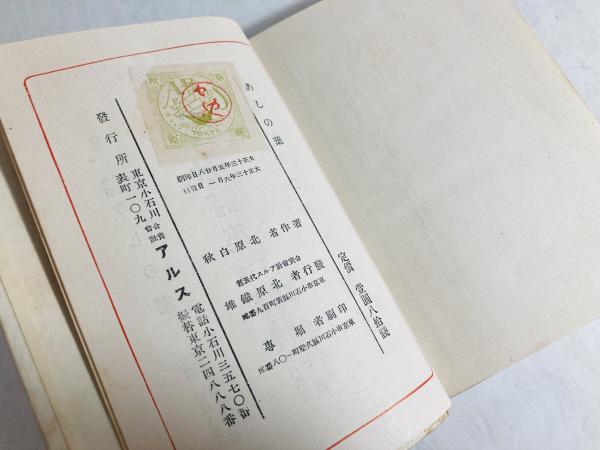 あしの葉
定價 壹圓八拾錢
大正十三年五月廿八日印刷
大正十三年六月一日發行
著作者 北原白秋
合資會社アルス代表者
發行者 北原鐵雄
東京市小石川區表町百九番地
印刷者 堀 專
東京市小石川區久堅町一〇八番地
發行所
東京小石川
表町一〇九
合資
會社
アルス
電話小石川三五七〇番
振替東京二四八八八番
ARS
TOKYO